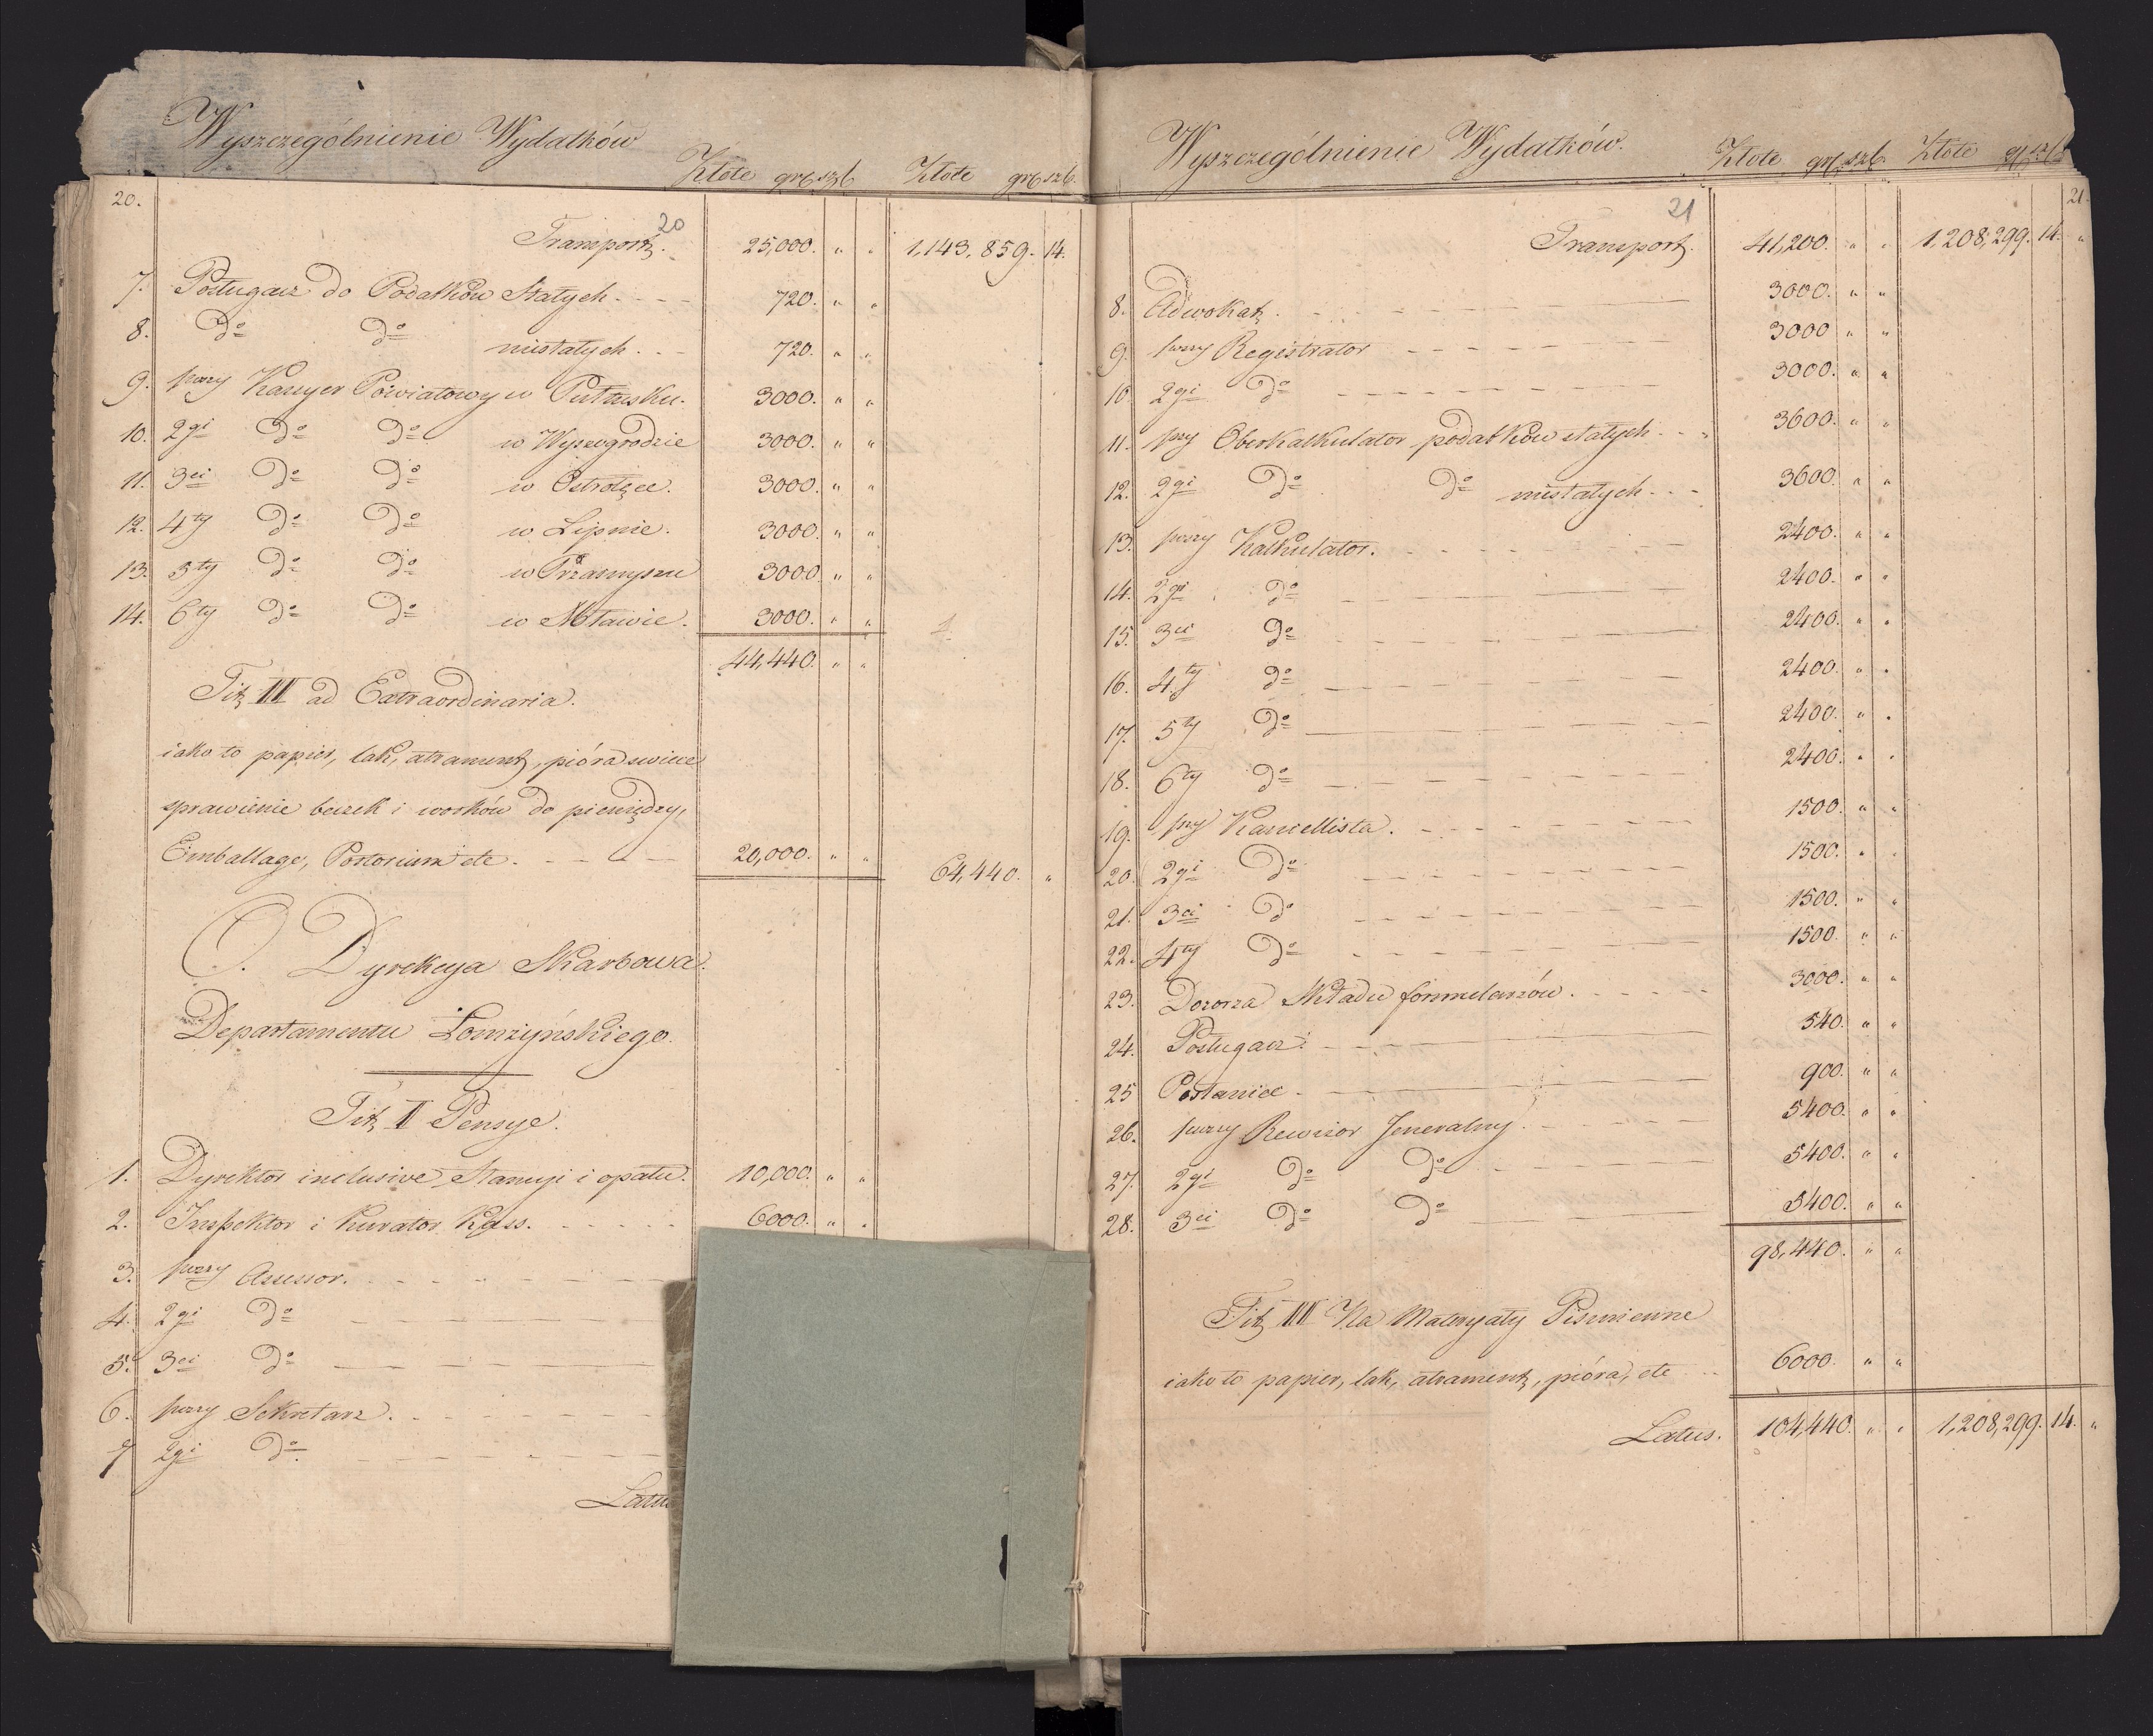 Wyszczególnienie Wydatków
Złote grsz. Złote gr.
20.
20
Transport. 25,000. " " 1,143,859. 14.
7. Posługacz do Podatków Stałych. 720. " "
8. Do Do niestałych. 720. " "
9. pszy Kassyer Powiatowy w Pułtusku. 3000. " "
10. 2gi Do Do w Wyszogrodzie 3000. " "
11. 3ci Do Do w Ostrołęce. 3000. " "
12. 4ty Do Do w Lipnie. 3000. " "
13. 5ty Do Do w Przasnyszu 3000 " "
14. 6ty Do Do w Mławie. 3000. " "
44,440. " "
Tit III ad Extraordinaria.
iako to papier, lak, atrament, pióra swiece
sprawienie beczek i worków do pieniędzy,
Emballage, Postorium etc. 20,000. " " 64,440. "
O. Dyrekcya Skarbowa.
Departamentu Łomżyńskiego.
Tit II Pensye.
1. Dyrektor inclusive Stancyi i opału. 10,000. " "
2. Inspektor i Kurator Kass. 6000. " "
3. pszy Assessor.
4. 2gi Do
5. 3ci Do
6. pszy Sekretarz.
7 2gi Do
Latus
Wyszczególnienie Wydatków.
Złote Złote
21.
21
Transport. 41,200. " " 1,208,299. 14. "
8. Adwokat. 3000. " "
9. pszy Registrator 3000 " "
10. 2gi Do 3000. " "
11. pszy Oberkalkulator podatków stałych. 3600. " "
12. 2gi Do Do niestałych. 3600. " "
13. pszy Kalkulator. 2400. " "
14. 2gi Do 2400. " "
15. 3ci Do 2400. " "
16. 4ty Do 2400. " "
17. 5ty Do 2400. " "
18. 6ty Do 2400. " "
19. pszy Kancellista. 1500. " "
20. 2gi Do 1500. " "
21. 3ci Do 1500. " "
22. 4ty Do 1500. " "
23. Dozorca Składu formularzów. 3000. " "
24. Posługacz 540. " "
25 Posłaniec 900. " "
26. pszy Rewizor Jeneralny. 5400. " "
27. 2gi Do Do 5400. " "
28. 3ci Do Do 5400. " "
98,440. " "
Tit III Na Materyały Pismienne
iako to papier, lak, atrament, pióra, etc 6000. " "
Latus. 104,440. " " 1,208,299. 14. "